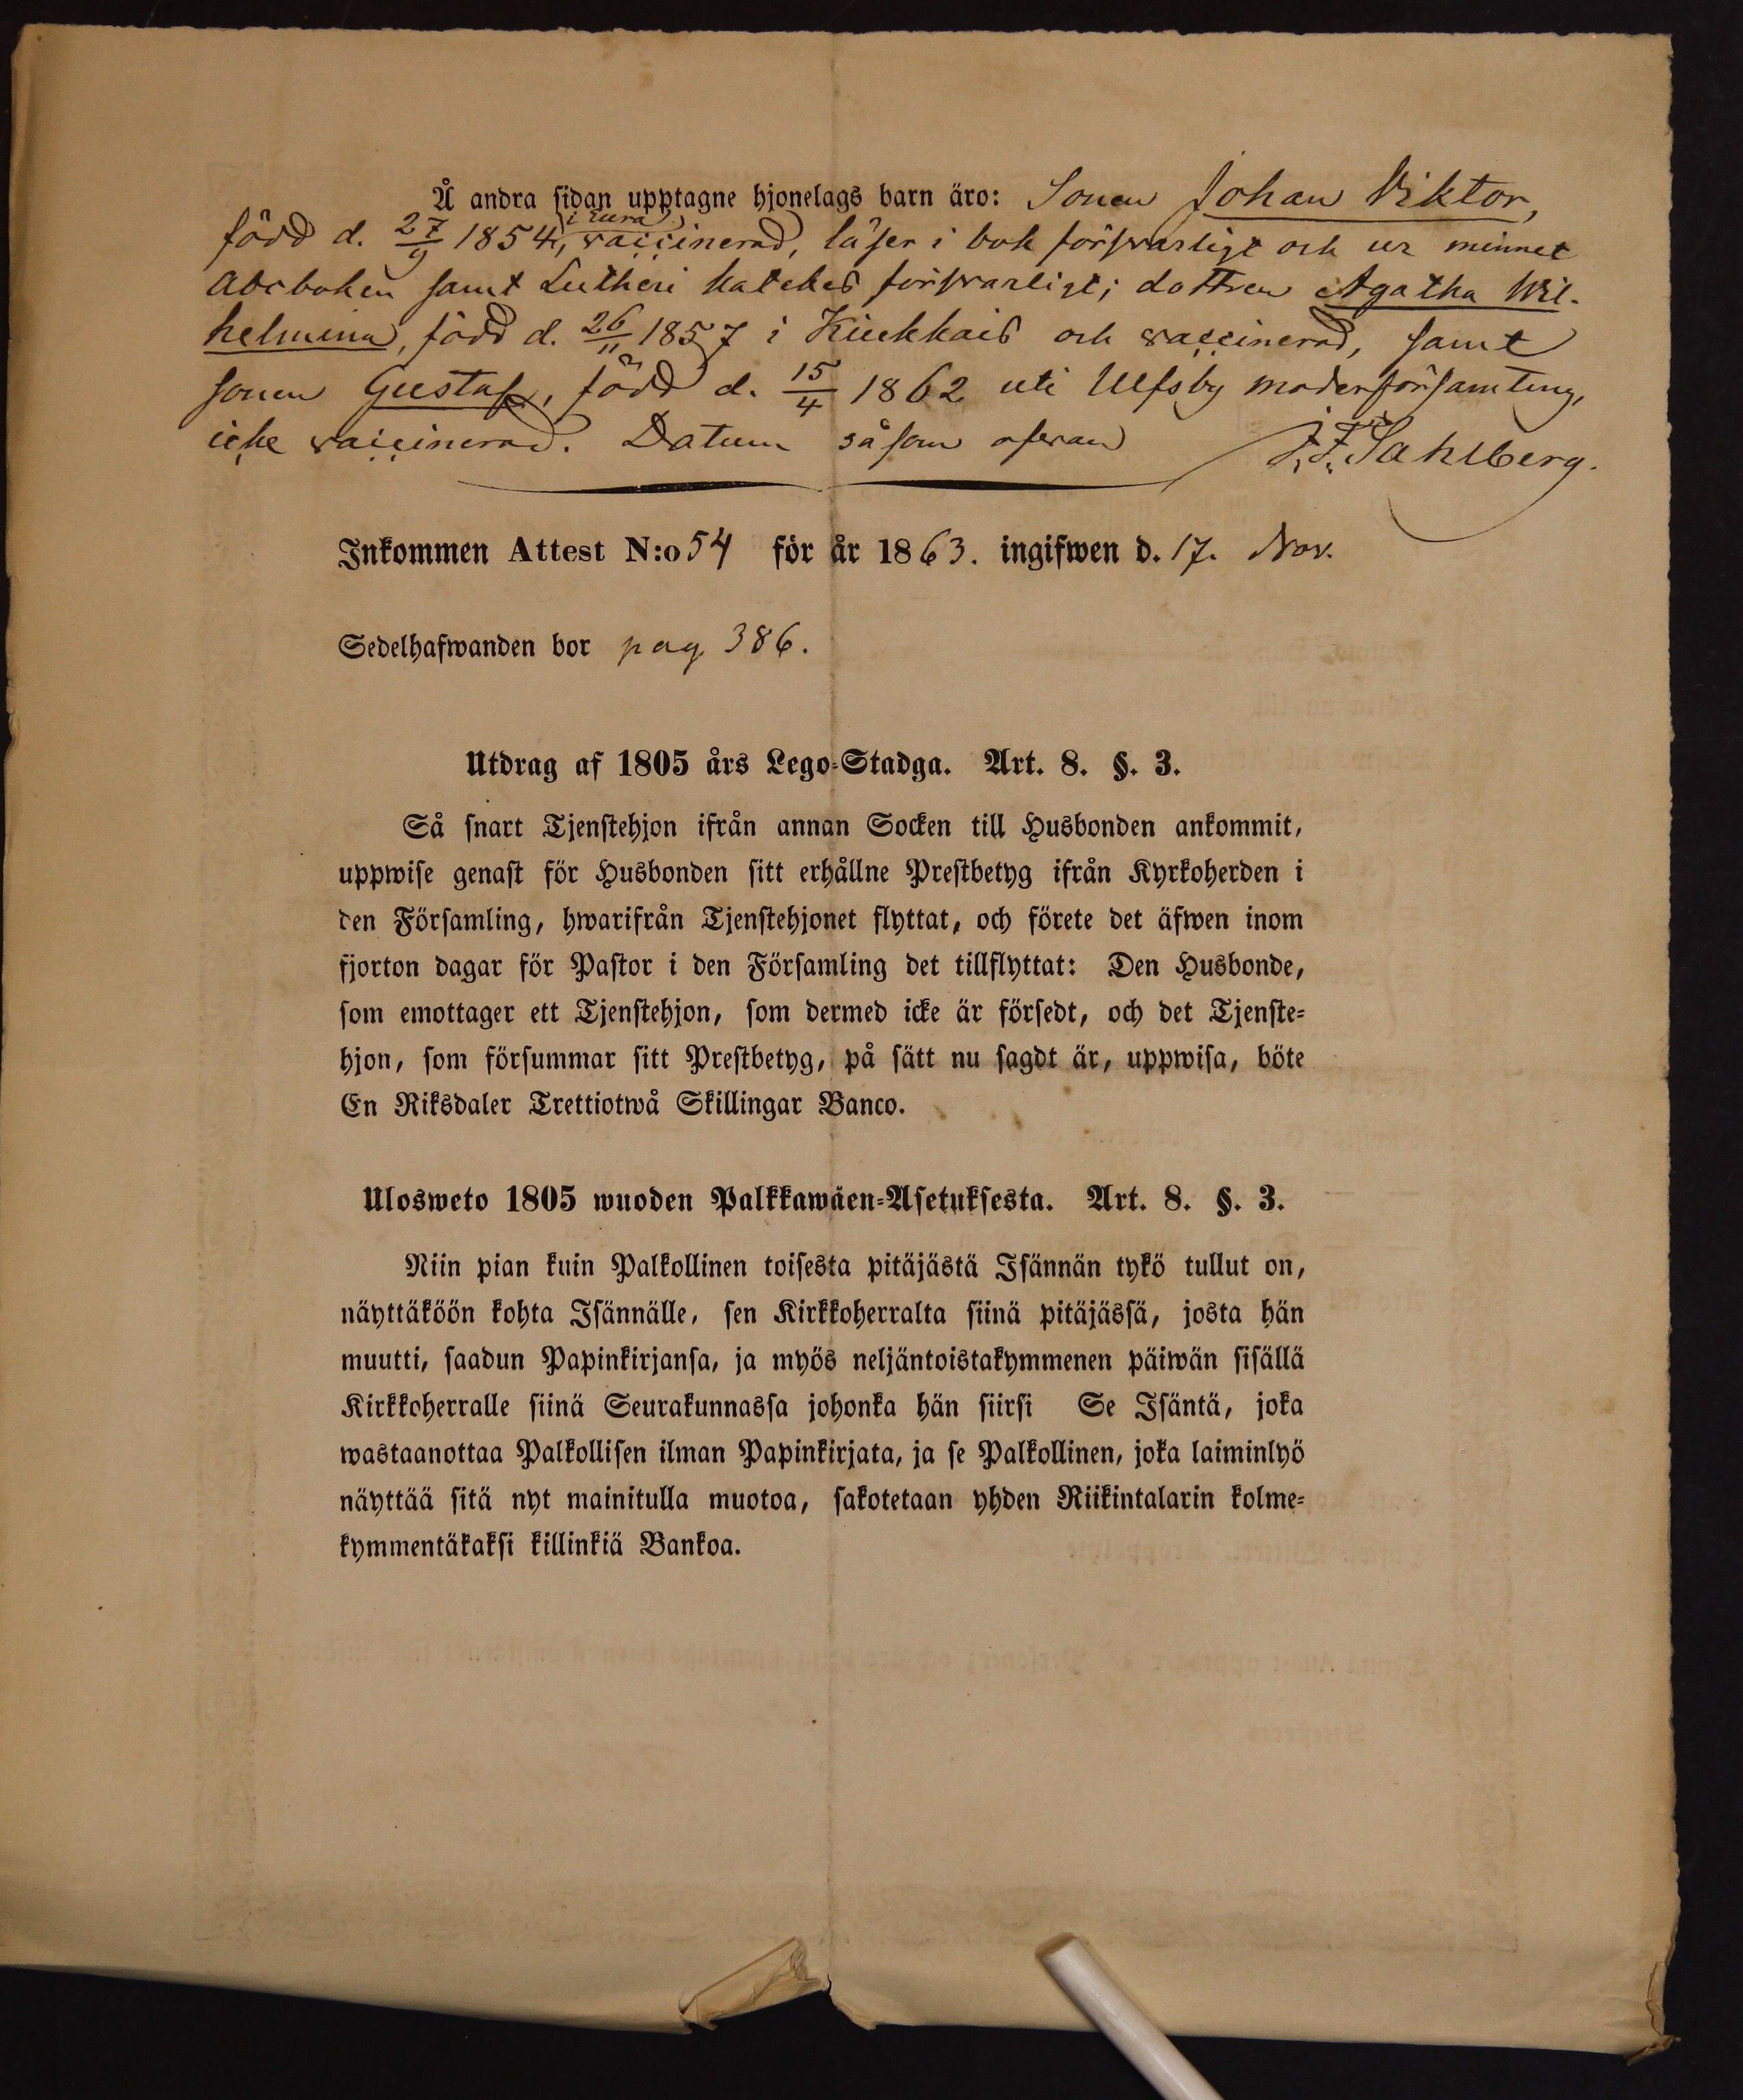 Å andra sidan upptagne hjonelags barn äro: Sonen Johan Viktor,
född d. 27/9 1854, i Eura vaccinerad, läser i bok försvarligt och ur minnet
Abcboken samt Lutheri katekes försvarligt; dottren Agatha Wil-
helmina, född d. 26/11 1857 i Kiukkais och vaccinerad, samt
sonen Gustaf, född d. 15/4 1862 uti Ulfsby moderförsamling,
icke vaccinerad. Datum såsom ofvan J. F. Sahlberg.
Inkommen Attest N:o 54 för år 1863. ingifwen d. 17. Nov.
Sedelhafwanden bor pag 386.
Utdrag af 1805 års Lego-Stadga. Art. 8. §. 3.
Så snart Tjenstehjon ifrån annan Socken till Husbonden ankommit,
uppwise genast för Husbonden sitt erhållne Prestbetyg ifrån Kyrkoherden i
den Församling, hwarifrån Tjenstehjonet flyttat, och förete det äfwen inom
fjorton dagar för Pastor i den Församling det tillflyttat: Den Husbonde,
som emottager ett Tjenstehjon, som dermed icke är försedt, och det Tjenste-
hjon, som försummar sitt Prestbetyg, på sätt nu sagdt är, uppwisa, böte
En Riksdaler Trettiotwå Skillingar Banco.
Ulosweto 1805 wuoden Palkkawäen-Asetuksesta. Art. 8. §. 3.
Niin pian kuin Palkollinen toisesta pitäjästä Isännän tykö tullut on,
näyttäköön kohta Isännälle, sen Kirkkoherralta siinä pitäjässä, josta hän
muutti, saadun Papinkirjansa, ja myös neljäntoistakymmenen päiwän sisällä
Kirkkoherralle siinä Seurakunnassa johonka hän siirsi Se Isäntä, joka
wastaanottaa Palkollisen ilman Papinkirjata, ja se Palkollinen, joka laiminlyö
näyttää sitä nyt mainitulla muotoa, sakotetaan yhden Riikintalarin kolme-
kymmentäkaksi killinkiä Bankoa.